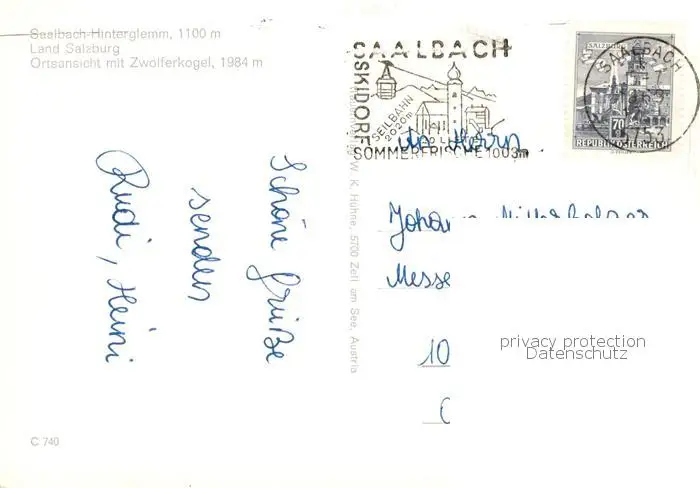 Saalbach-Hinterglemm, 1100 m
Land Salzburg
Ortsansicht mit Zwölferkogel, 1984 m
SAALBACH
SKIDORF
SEILBAHN
2020m
SOMMERFRISCHE 1003m
SALZBURG
70
REPUBLIK ÖSTERREICH
SAALBACH
5753
Herrn
Messe
10
Schöne Grüße
senden
Rudi, Heini
W. K. Hühne, 5700 Zell am See, Austria
privacy protection
Datenschutz
C 740